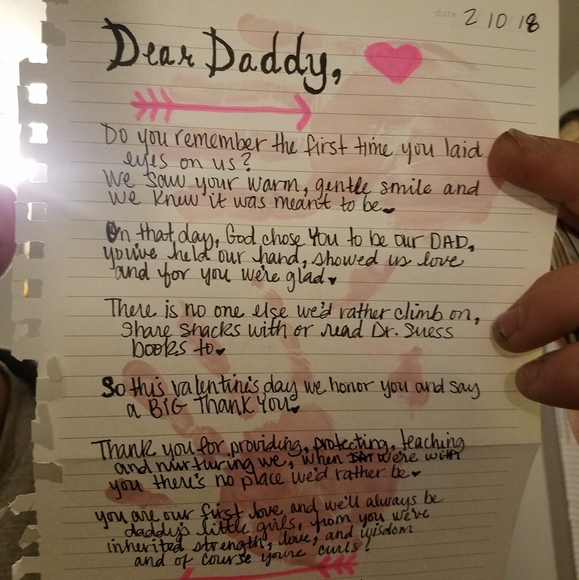 date 2 10 18
Dear Daddy,
Do you remember the first time you laid
eyes on us?
We saw your warm, gentle smile and
we knew it was meant to be
On that day, God chose You to be our DAD,
you've held our hand, showed us love
and for you we're glad
There is no one else we'd rather climb on,
share snacks with or read Dr. Suess
books to
So this valentine's day we honor you and say
a BIG Thank You
Thank you for providing, protecting, teaching
and nurturing we, when were with
you there's no place we'd rather be
you are our first love and we'll always be
daddy's little girls, from you we've
inherited strength, love, and wisdom
and of course youre curls!